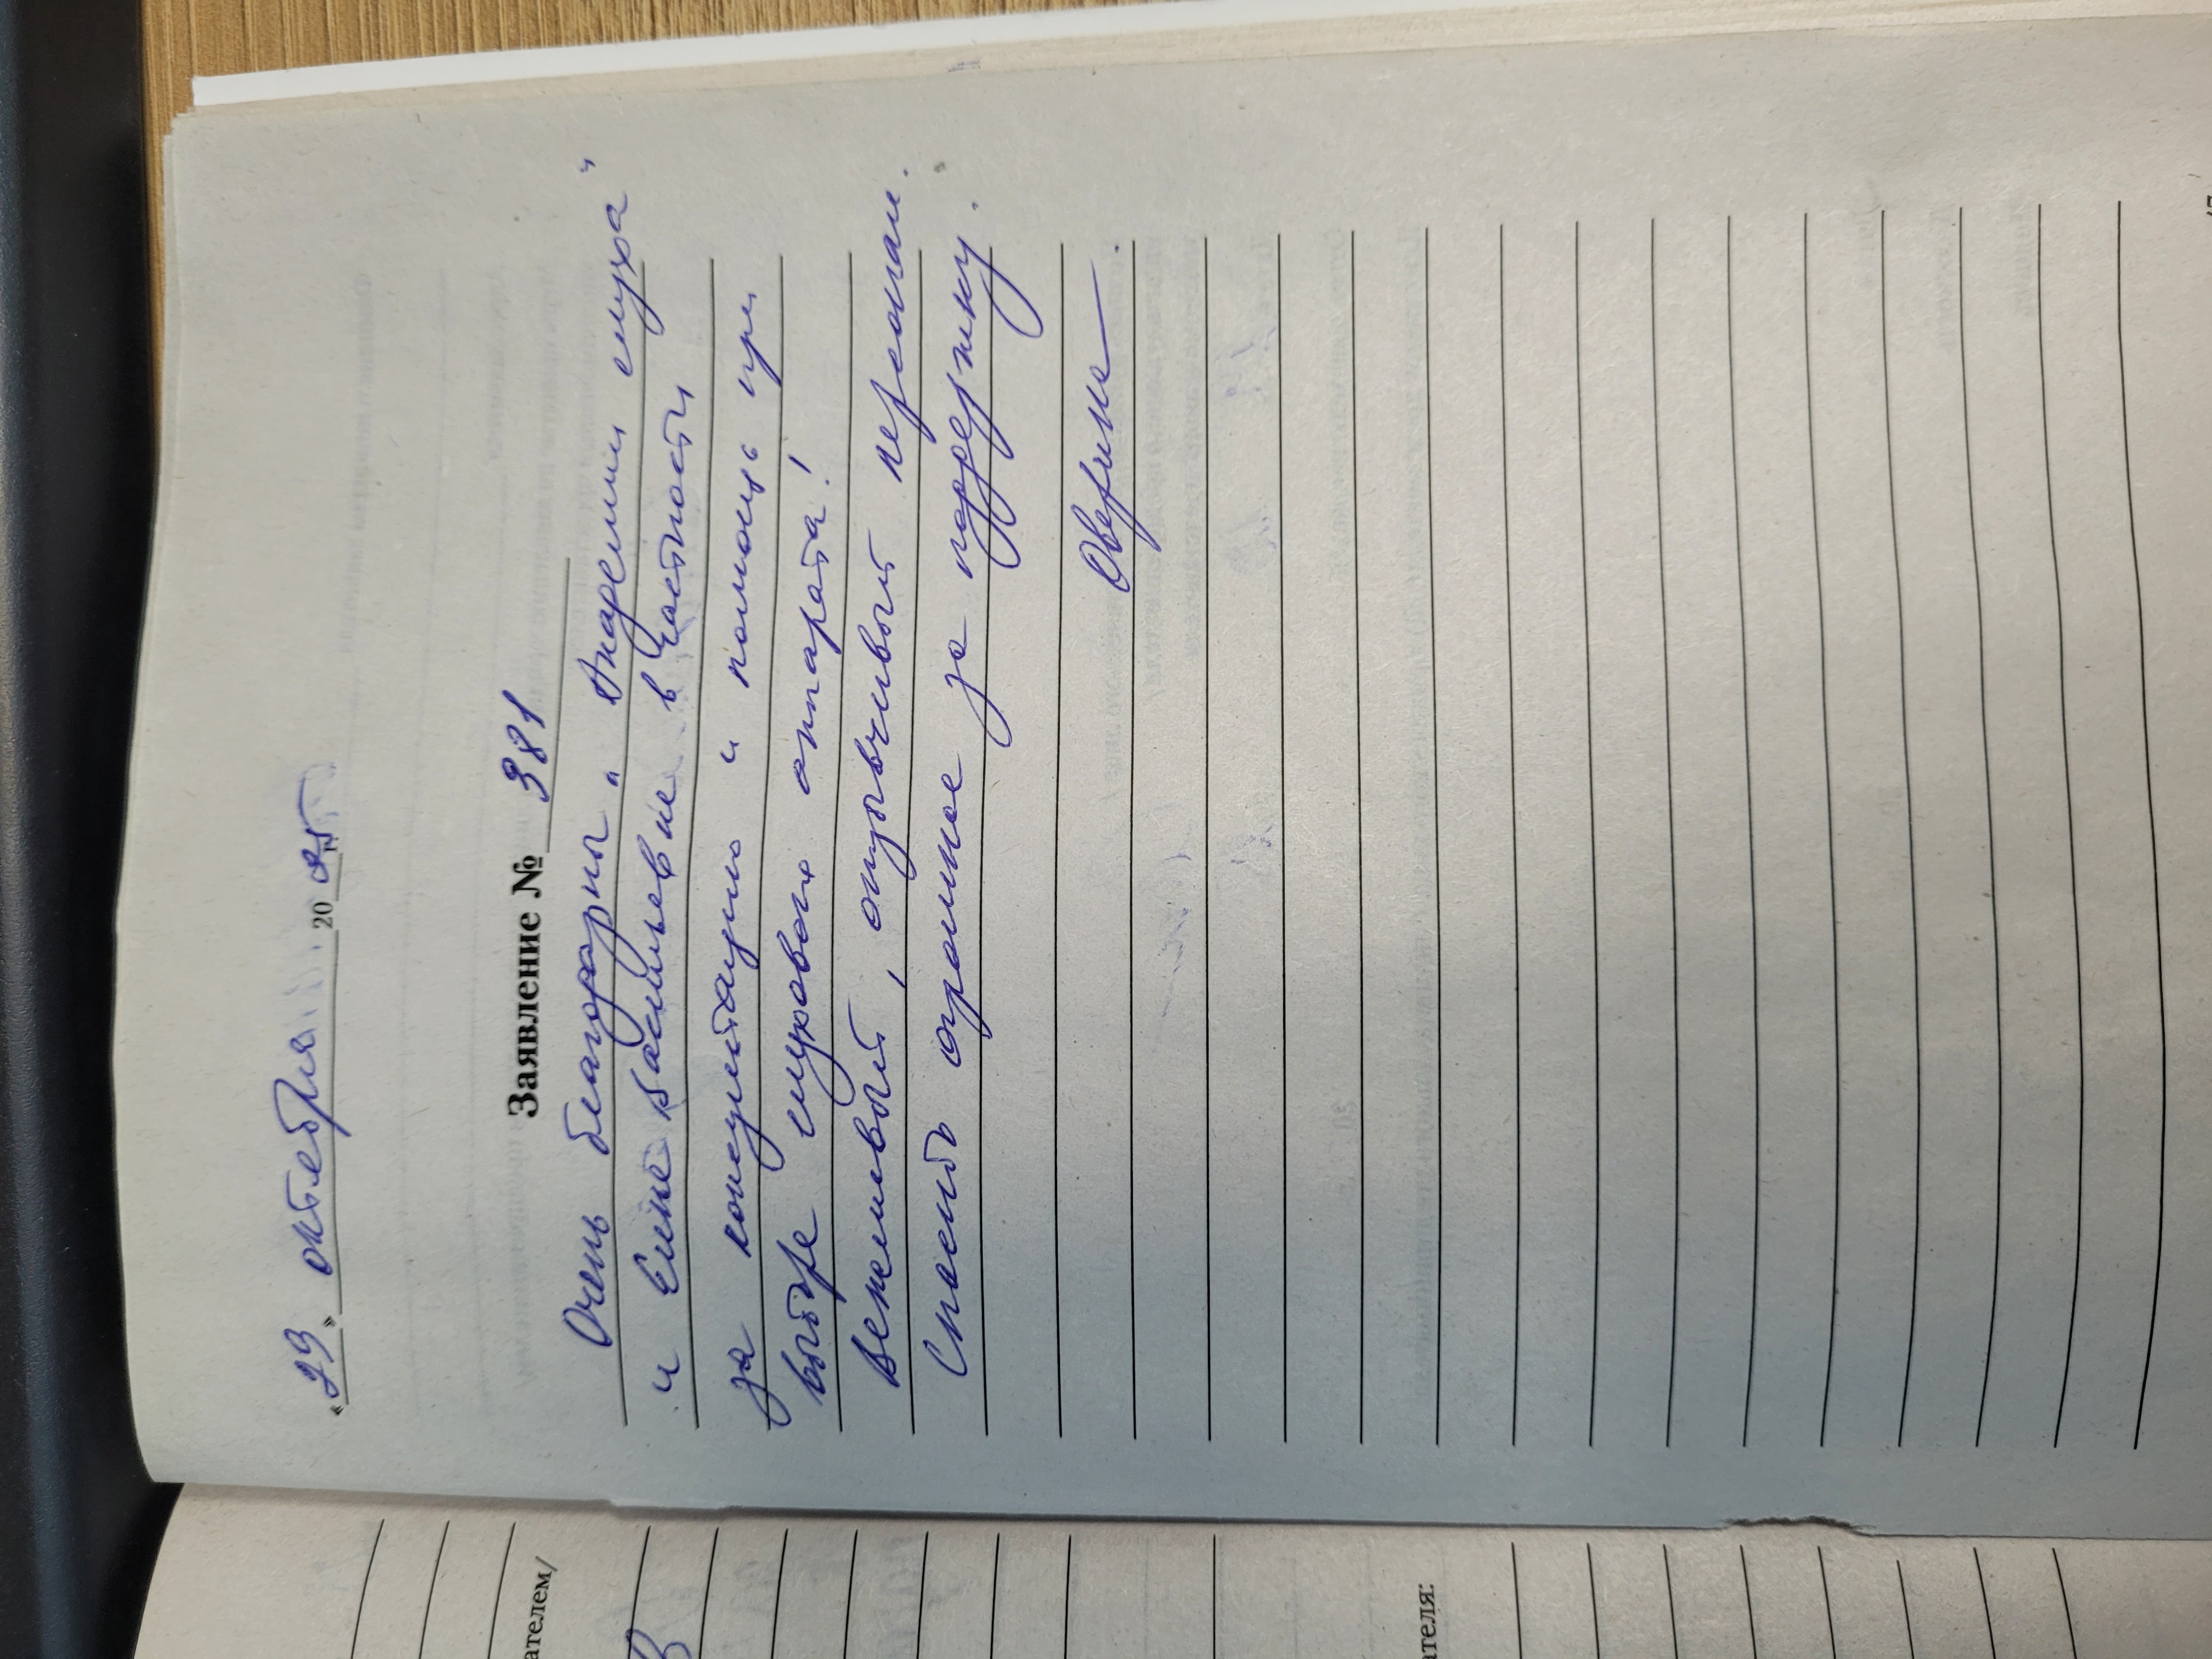 «29» октября 2025 г.
Заявление № 381
Очень благодарны "Академии слуха"
и Елене Васильевне в частности
за консультацию и помощь при
выборе слухового аппарата!
Вежливый, отзывчивый персонал.
Спасибо огромное за поддержку.
Аверина
ателем/
ателя: